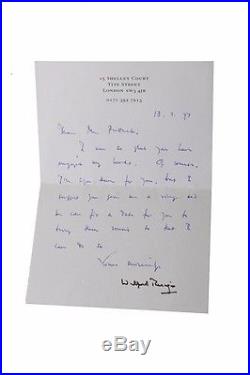 15 SHELLEY COURT
TITE STREET
LONDON SW3 4JB
0171 352 7213
Dear Mr
I am so glad you have
enjoyed my books. Of course
I'll sign them for you, but I
suggest you give me a ring and
we can fix a date for you to
bring them round so that I
can do so
Yours sincerely
Wilfred Thesiger
ebay